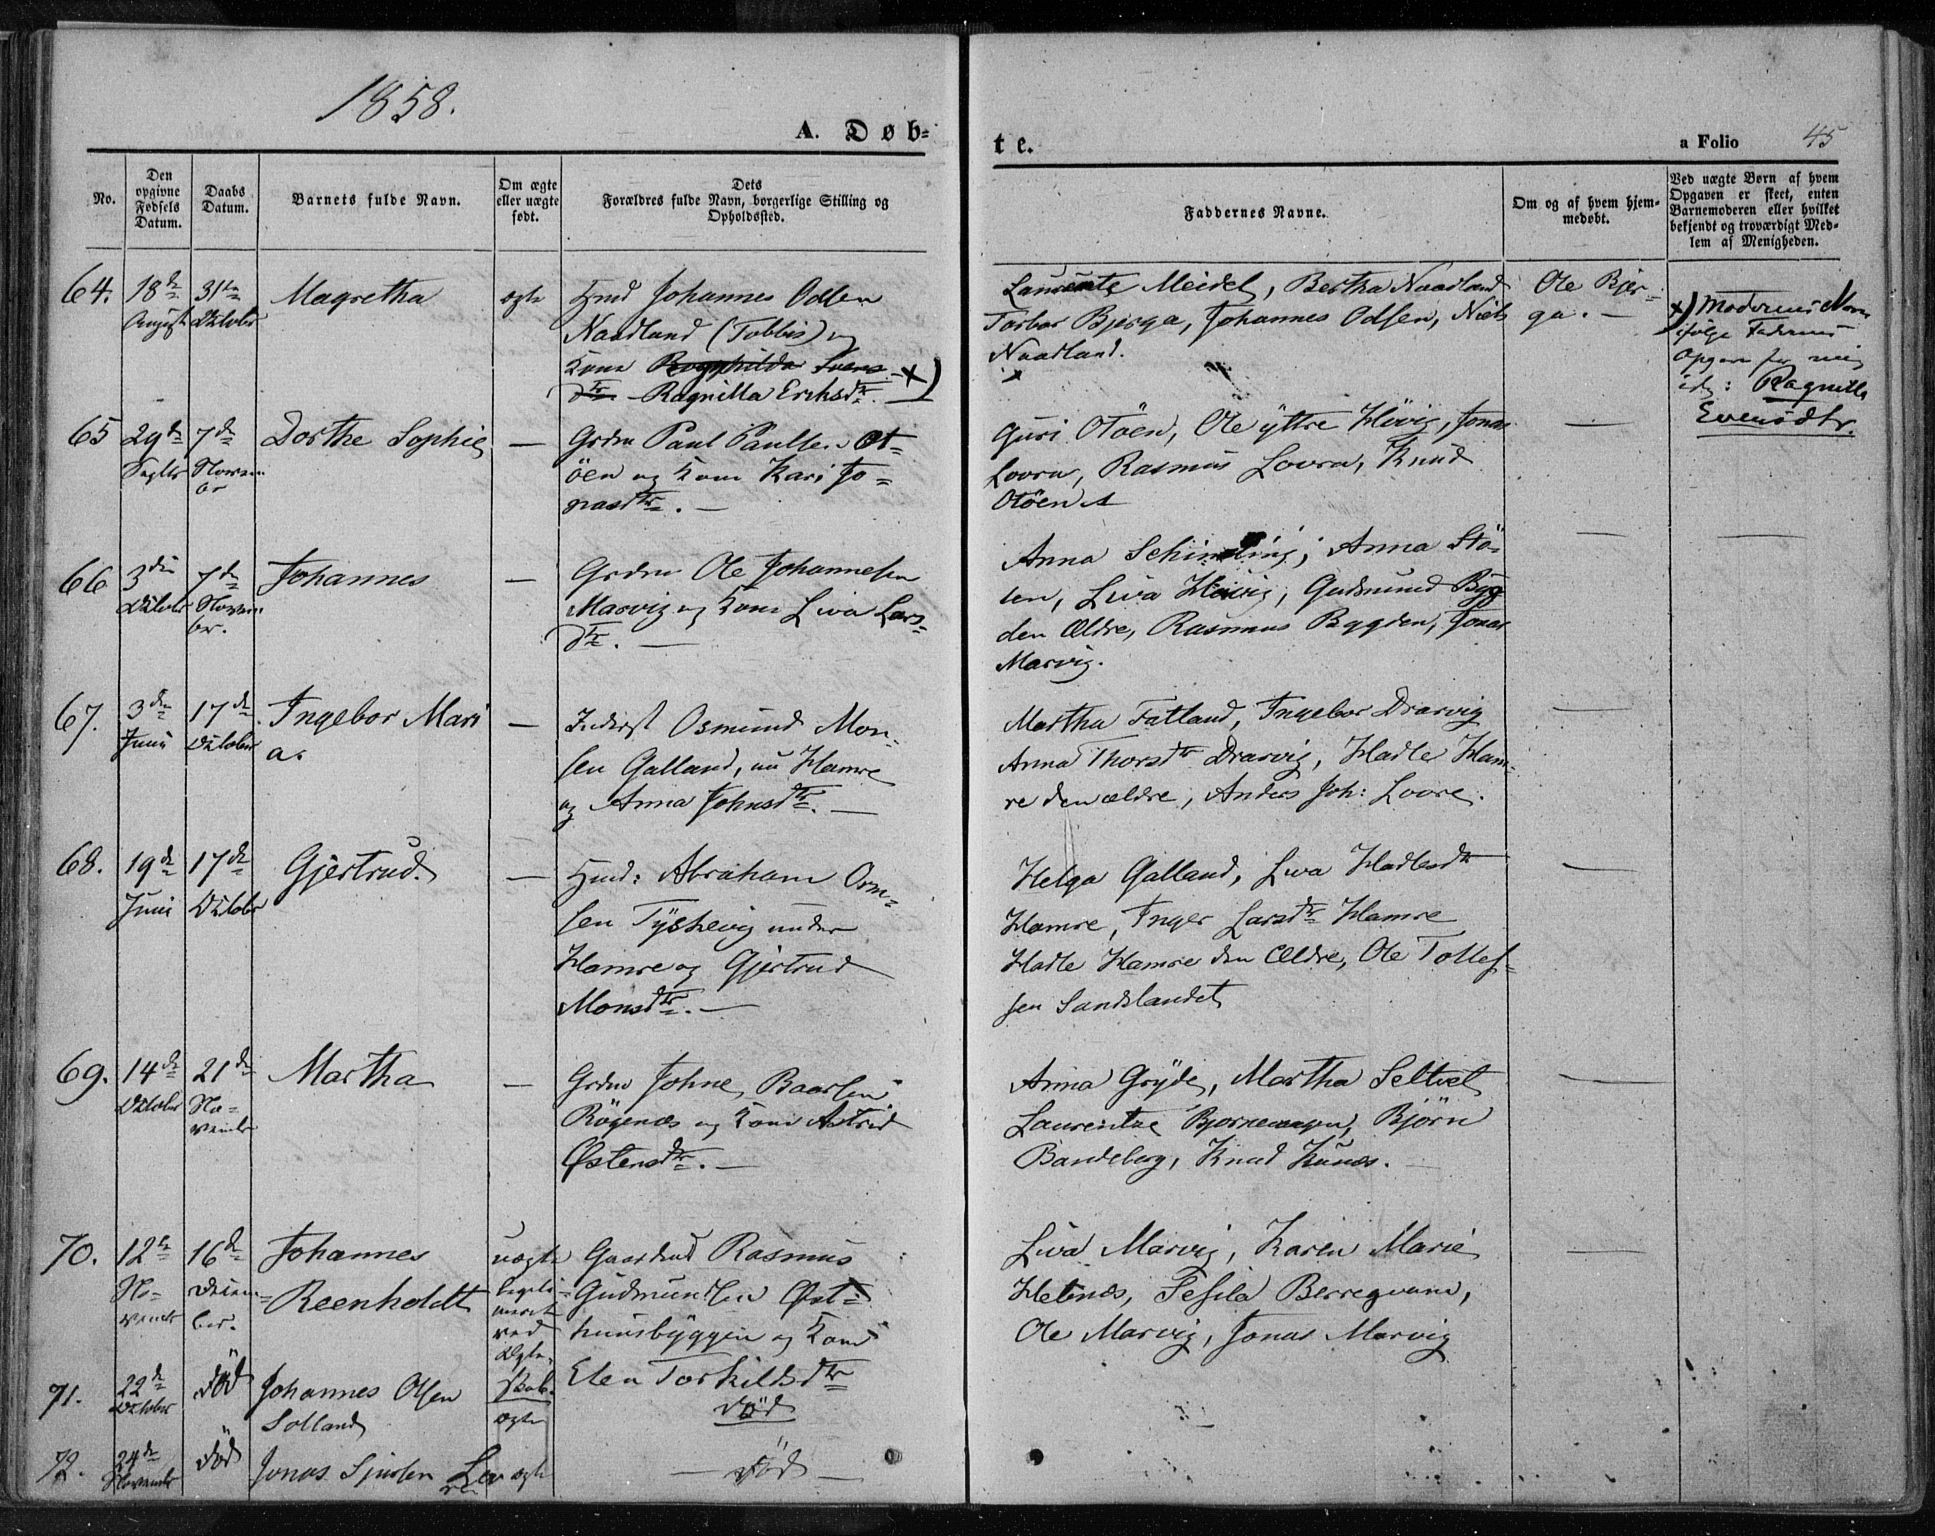 1858.
A. Døb=
te.
a Folio 45
No.
Den opgivne Fødsels Datum.
Daabs Datum.
Barnets fulde Navn.
Om ægte eller uægte født.
Dets Forældres fulde Navn, borgerlige Stilling og Opholdssted.
Faddernes Navne.
Om og af hvem hjemmedøbt.
Ved uægte Børn af hvem Opgaven er skeet, enten Barnemoderen eller hvilket bekjendt og troværdigt Medlem af Menigheden.
64. 18de August 31te Oktobr Magretha ægte
Hmd Johannes Odsen
Naadland (Tobbis) og
Kone Ragnhilda Svens
Dtr Ragnilla Eriksdtr. x)
Laurente Meidel, Bertha Naadland
Torbor Bjerga, Johannes Odsen, Niels
Naadland.
Ole Bjer-
ga. —
x) Moderens Navn
ifølge Faderens
Opgave for mig
er: Ragnille
Evensdtr.
65 29de Septbr 7de Novembr Dorthe Sophie —
Grdm Paul Paulsen Ot-
öen og Kone Kari Jo-
nasdtr. —
Guri Otöen, Ole yttre Hövig, Jonas
Lovra, Rasmus Lovra, Knud
Otöen
66 3die Oktobr 7de Novembr. Johannes —
Grdm Ole Johannesen
Marvig og Kone Liva Lars-
Dtr. —
Anna Schimeling, Anna Stö-
len, Liva Hövig, Gudmund Byg
den Ældre, Rasmus Bygden, Jonas
Marvig.
67. 3die Juni 17de Oktober Ingebor Mari
a. —
Inderst Osmund Mon-
sen Galland, nu Hamre
og Anna Johnsdtr. —
Martha Fatland, Ingebor Drarvig
Anna Thorsdtr Drarvig, Hadle Ham-
re den ældre, Anders Joh: Lovre.
68. 19de Juni 17de Oktobr Gjertrud. —
Hmd: Abraham Orm-
sen Tÿshevig under
Hamre og Gjertrud
Monsdtr. —
Helga Galland, Liva Hadlesdtr
Hamre, Inger Larsdtr Hamre
Hadle Hamre den Ældre, Ole Tollef-
sen Sandslandet
69. 14de Oktobr 21de Novembr Martha —
Grdm Johne Baarsen
Rögenæs og Kone Astrid
Østensdtr. —
Anna Grÿde, Martha Seltvet
Laurentze Bjornevangen, Björn
Bandeberg, Knud
70. 12te Novembr 16de Decem=
ber. Johannes
Reenholdt
uægte
legiti=
meret
ved
Ægte-
skab.
Gaardmd Rasmus
Gudmundsen Øst-
huusbyggen og Kone
Elen Torkildsdtr
Liva Marvig, Karen Marie
Hebnes, Sesila Berregvam,
Ole Marvig, Jonas Marvig
71. 22de Oktober Död Johannes Olsen
Solland ægte
Död
72. 24de November Död Jonas Sjursen ægte
— Död —